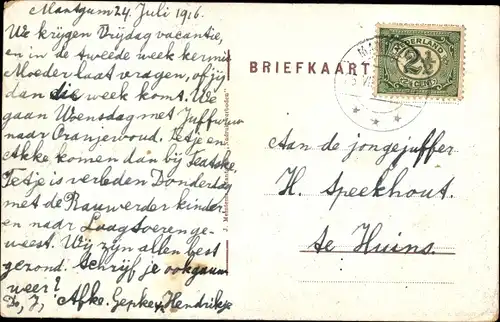 Mantgum 24 Juli 1916.
We krijgen Vrijdag vacantie,
en in de tweede week kermis
Moeder laat vragen, of jij
dan die week komt. We
gaan Woensdag met Juffrouw
naar Oranjewoud. Tetje en
Akke komen dan bij Teatske
Tetje is verleden Donderdag
met de Rauwerder kinder
en naar Laag Soeren ge-
weest. Wij zijn allen best
gezond. Schrijf je ook gauw
weer?
Afke, Gepke, Hendrikje
BRIEFKAART
NEDERLAND
2½
CENT
Aan de jongejuffer
H. Speekhout.
te Huins.